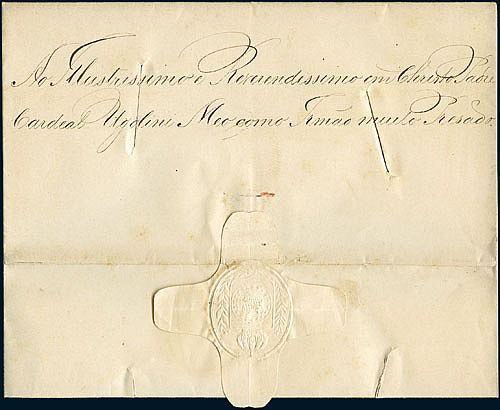 Ao Illustrissimo e Reverendissimo em Christo Padre
Cardeal Ugolini Meo como Irmão muito Presado,